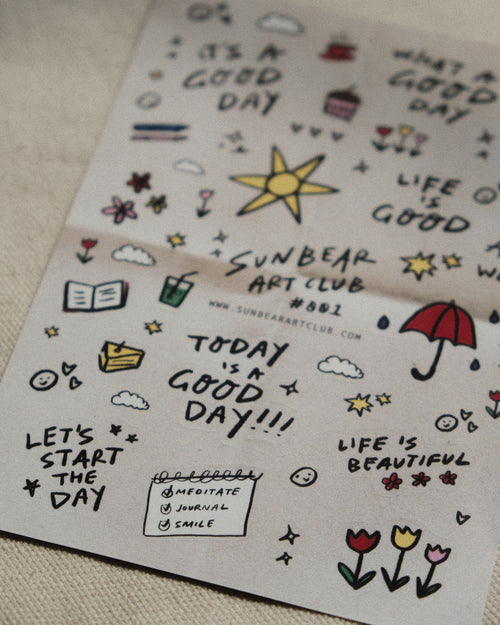 IT'S A
GOOD
DAY
WHAT A
GOOD
DAY
LIFE
IS
GOOD
SUNBEAR
ART CLUB
#001
WWW.SUNBEARARTCLUB.COM
TODAY
IS A
GOOD
DAY!!!
LET'S
START
THE
DAY
MEDITATE
JOURNAL
SMILE
LIFE IS
BEAUTIFUL